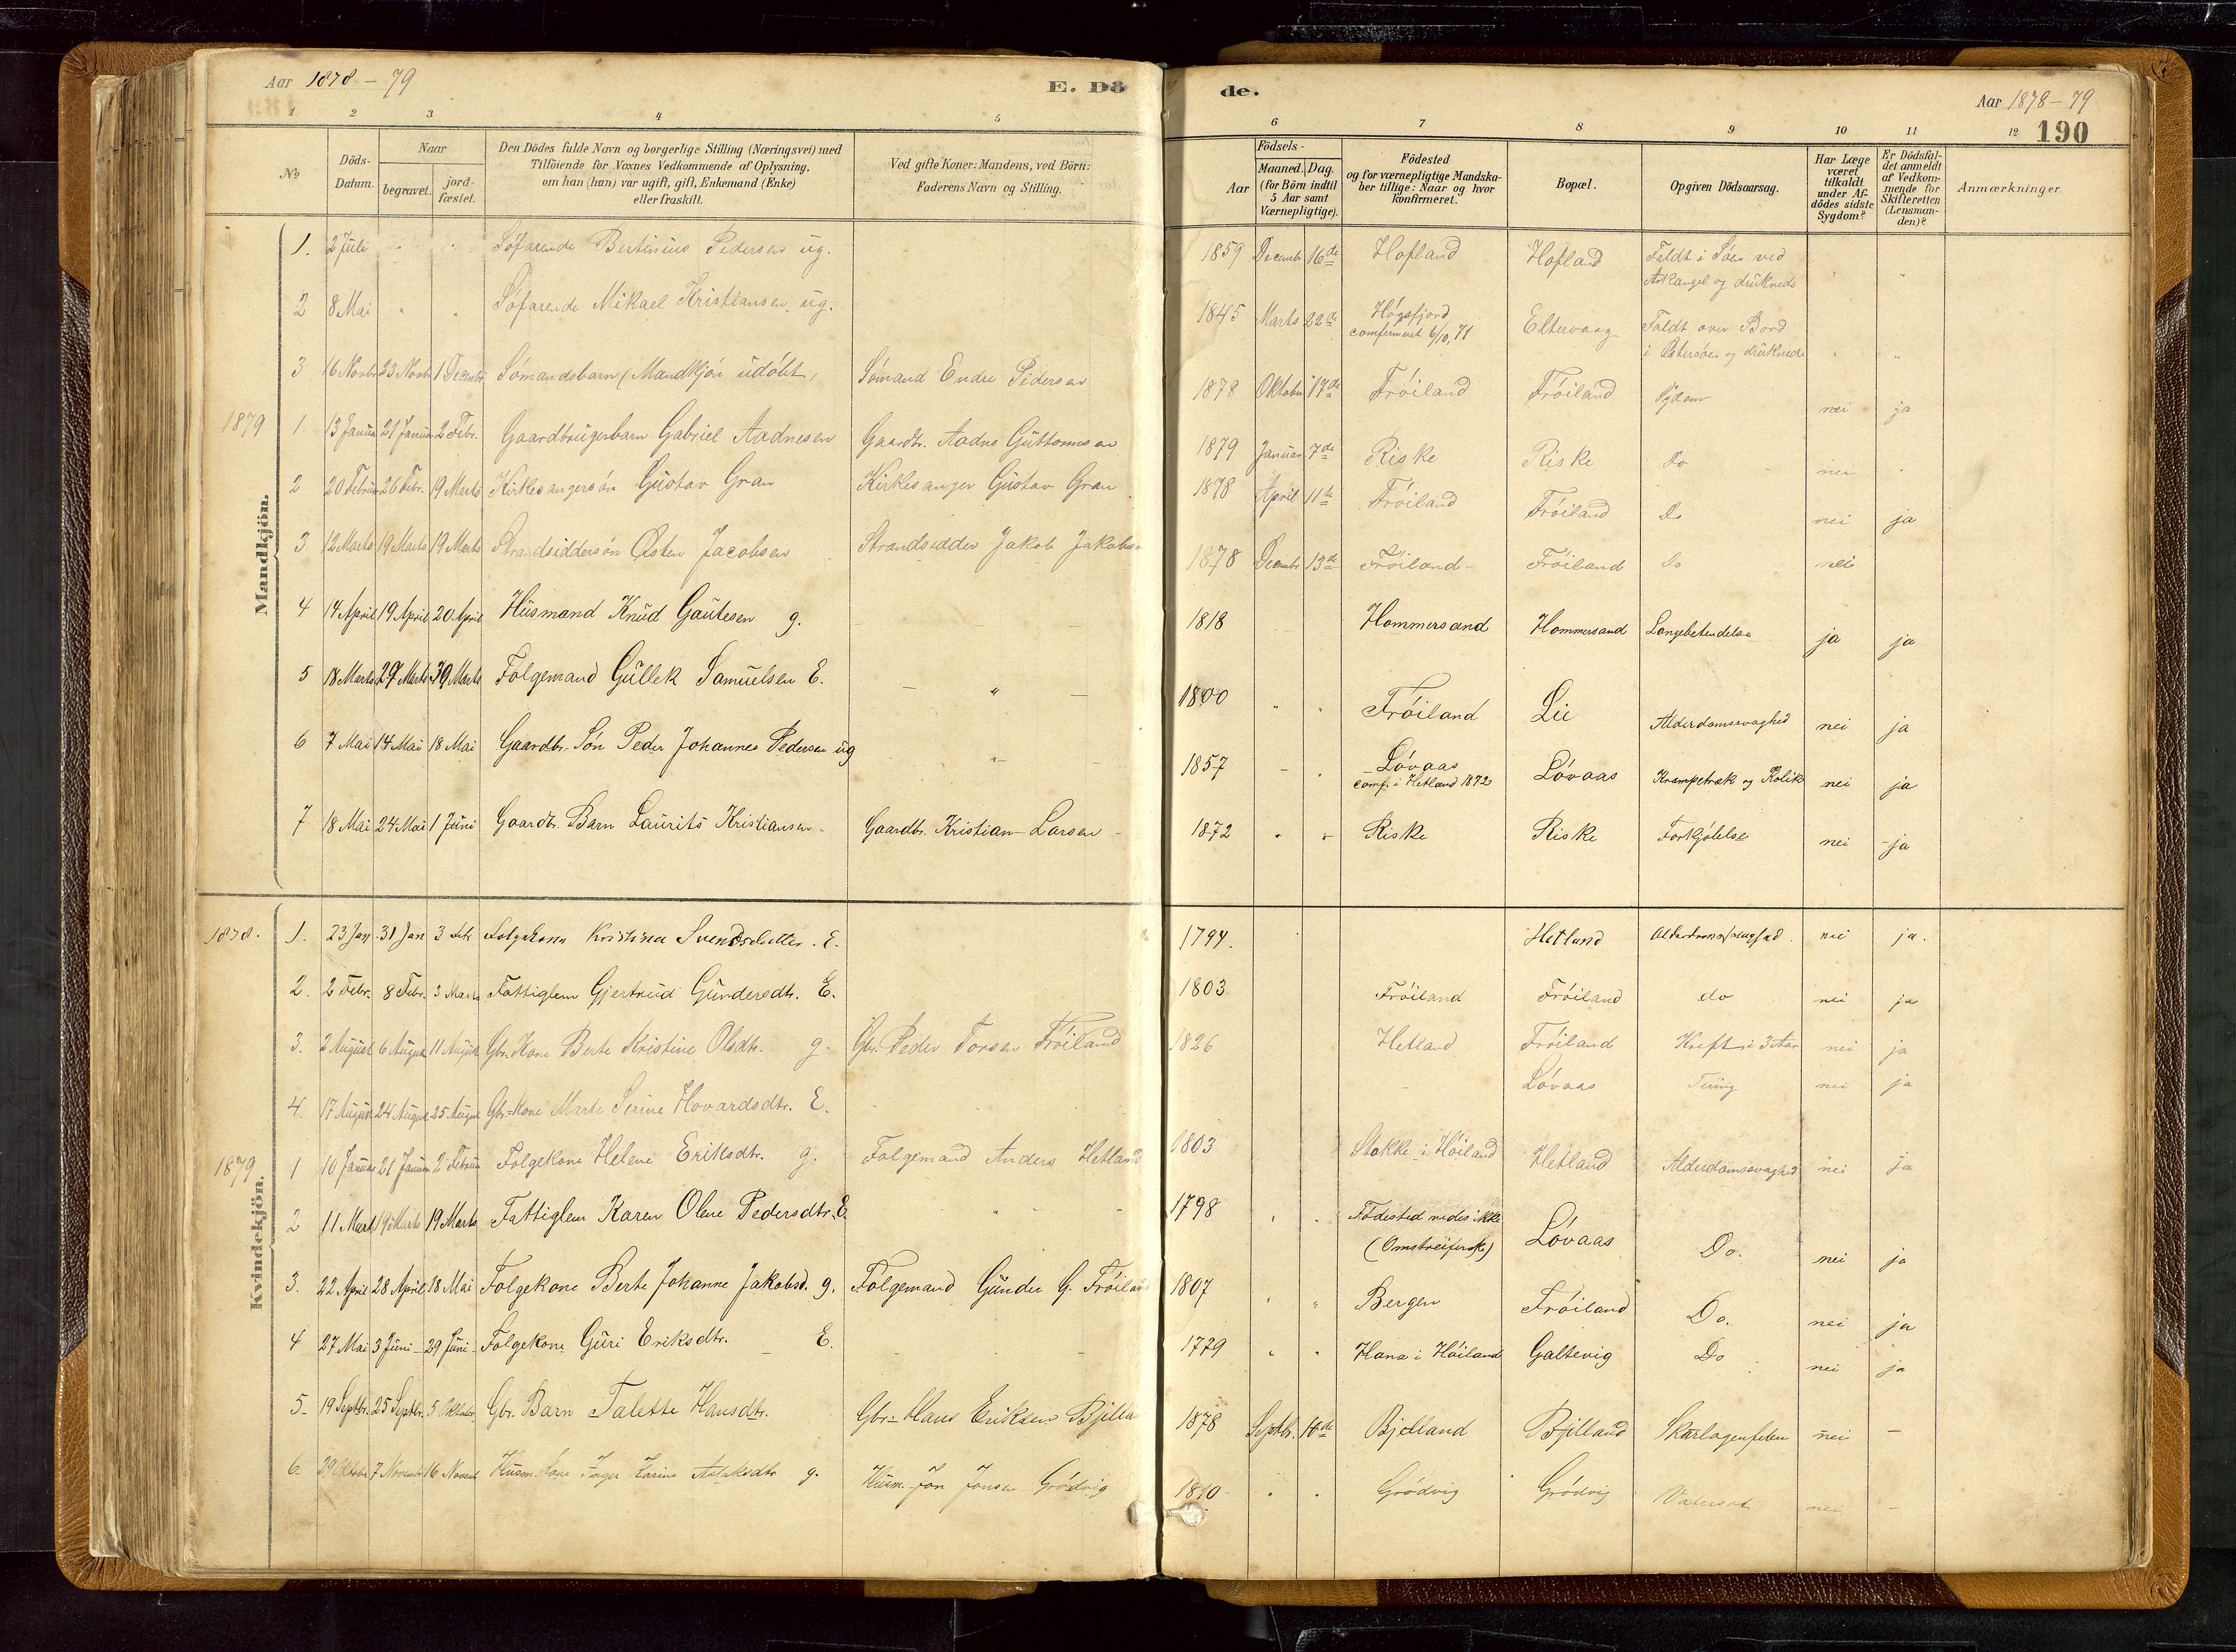 Aar 1878 – 79
E. Dö
de.
Aar 1878 – 79
190
1 2 3 4 5 6 7 8 9 10 11 12
№
Döds-Datum.
Naar
begravet.
jord-fæstet.
Den Dödes fulde Navn og borgerlige Stilling (Næringsvei) med
Tilföiende for Voxnes Vedkommende af Oplysning,
om han (hun) var ugift, gift, Enkemand (Enke)
eller fraskilt.
Ved gifte Koner: Mandens, ved Börn:
Faderens Navn og Stilling.
Födsels-
Aar
Maaned. Dag.
(for Börn indtil
5 Aar samt
Værnepligtige).
Födested
og for værnepligtige Mandska-
ber tillige: Naar og hvor
konfirmeret.
Bopæl.
Opgiven Dödsaarsag.
Har Læge
været
tilkaldt
under Af-
dödes sidste
Sygdom?
Er Dödsfal-
det anmeldt
af Vedkom-
mende for
Skifteretten
(Lensman-
den)?
Anmærkninger.
Mandkjön.
1. 2 Juli " " Søfarende Bertinius Pedersen ug. 1859 Decembr 16de Hofland Hofland Faldt i Søen ved
Arkangel og druknede " "
2 8 Mai " " Søfarende Mikael Kristiansen ug. 1845 Marts 22de Høgsfjord
comfirmeret 6/10, 71 Eltervaag Faldt over Bord
i Østersøen og druknede " "
3 16 Novbr 23 Novbr 1 Decembr Sømandsbarn (Mandkjøn udøbt) Sømand Endre Pedersen 1878 Oktober 17de Frøiland Frøiland Sygdom nei ja
1879 1. 13 Januar 21 Januar 2 Febr. Gaardbrugerbarn Gabriel Aadnesen Gaardbr. Aadne Guttormsen 1879 Januar 7de Riske Riske Do nei "
2 20 Februar 26 Febr. 19 Marts Kirkesangersøn Gustav Gran Kirkesanger Gustav Gran 1878 April 11te Frøiland Frøiland Do nei ja
3 12 Marts 19 Marts 19 Marts Strandsiddersøn Østen Jacobsen Strandsidder Jakob Jakobsen 1878 Decembr 13de Frøiland Frøiland Do nei
4 14 April 19 April 20 April Husmand Knud Gautesen g. 1818 Hommersand Hommersand Lungebetendelse ja ja
5 18 Marts 29 Marts 30 Marts Folgemand Gullek Samuelsen E. — " — 1800 " " Frøiland Lie Alderdomssvaghed nei ja
6 7 Mai 14 Mai 18 Mai Gaardbr. Søn Peder Johannes Pedersen ug — " — 1857 – " Løvaas
comf. i Hetland 1872 Løvaas Krampetræk og Kolik nei ja
7 18 Mai 24 Mai 1 Juni Gaardbr. Barn Laurits Kristiansen Gaardbr. Kristian Larsen 1872 " " Riske Riske Forkjølelse nei ja
Kvindekjön.
1878. 1. 23 Jan 31 Jan 3 Febr Folgekone Kristina Svendsdatter E. 1794. Hetland Alderdomssvaghed nei ja.
2. 2 Febr. 8 Febr. 3 Marts Fattiglem Gjertrud Gundersdtr. E. 1803 Frøiland Frøiland do nei ja
3. 2 August 6 August 11 August Gbr. Kone Berte Kristine Olsdtr. g. Gbr. Peder Torsen Frøiland 1826 Hetland Frøiland Kreft i 3 Aar nei ja
4. 17 August 24 August 25 August Gbr. Kone Marte Serine Hovardsdtr. E. Løvaas Tering nei ja
1879 1 10 Januar 21 Januar 2 Februar Folgekone Helene Eriksdtr. g. Folgemand Anders Hetland 1803 Stokke i Høiland Hetland Alderdomssvaghed nei ja
2 11 Marts 19 Marts 19 Marts Fattiglem Karen Olene Pedersdtr. E. 1798 " " Fødested vides ikke
(Omstreiferske) Løvaas Do. nei ja
3. 22 April 28 April 18 Mai Folgekone Berte Johanne Jakobsd. g. Folgemand Gunder G. Frøiland 1807 " " Bergen Frøiland Do. nei ja
4 27 Mai 3 Juni 29 Juni Folgekone Guri Eriksdtr. E. 1779 " " Hana i Høiland Galtevig Do nei ja
5. 19 Septbr. 25 Septbr. 5 Oktober Gbr. Barn Talette Hansdtr. Gbr. Hans Eriksen Bjelland 1878 Septbr. 10de Bjelland Bjelland Skarlagenfeber nei —
6. 29 Oktober 7 November 16 Novembr Husm. Kone Inger Karine Aslaksdtr g. Husm. Jon Jonsen Grødvig 1810 " " Grødvig Grødvig Vatersot nei —